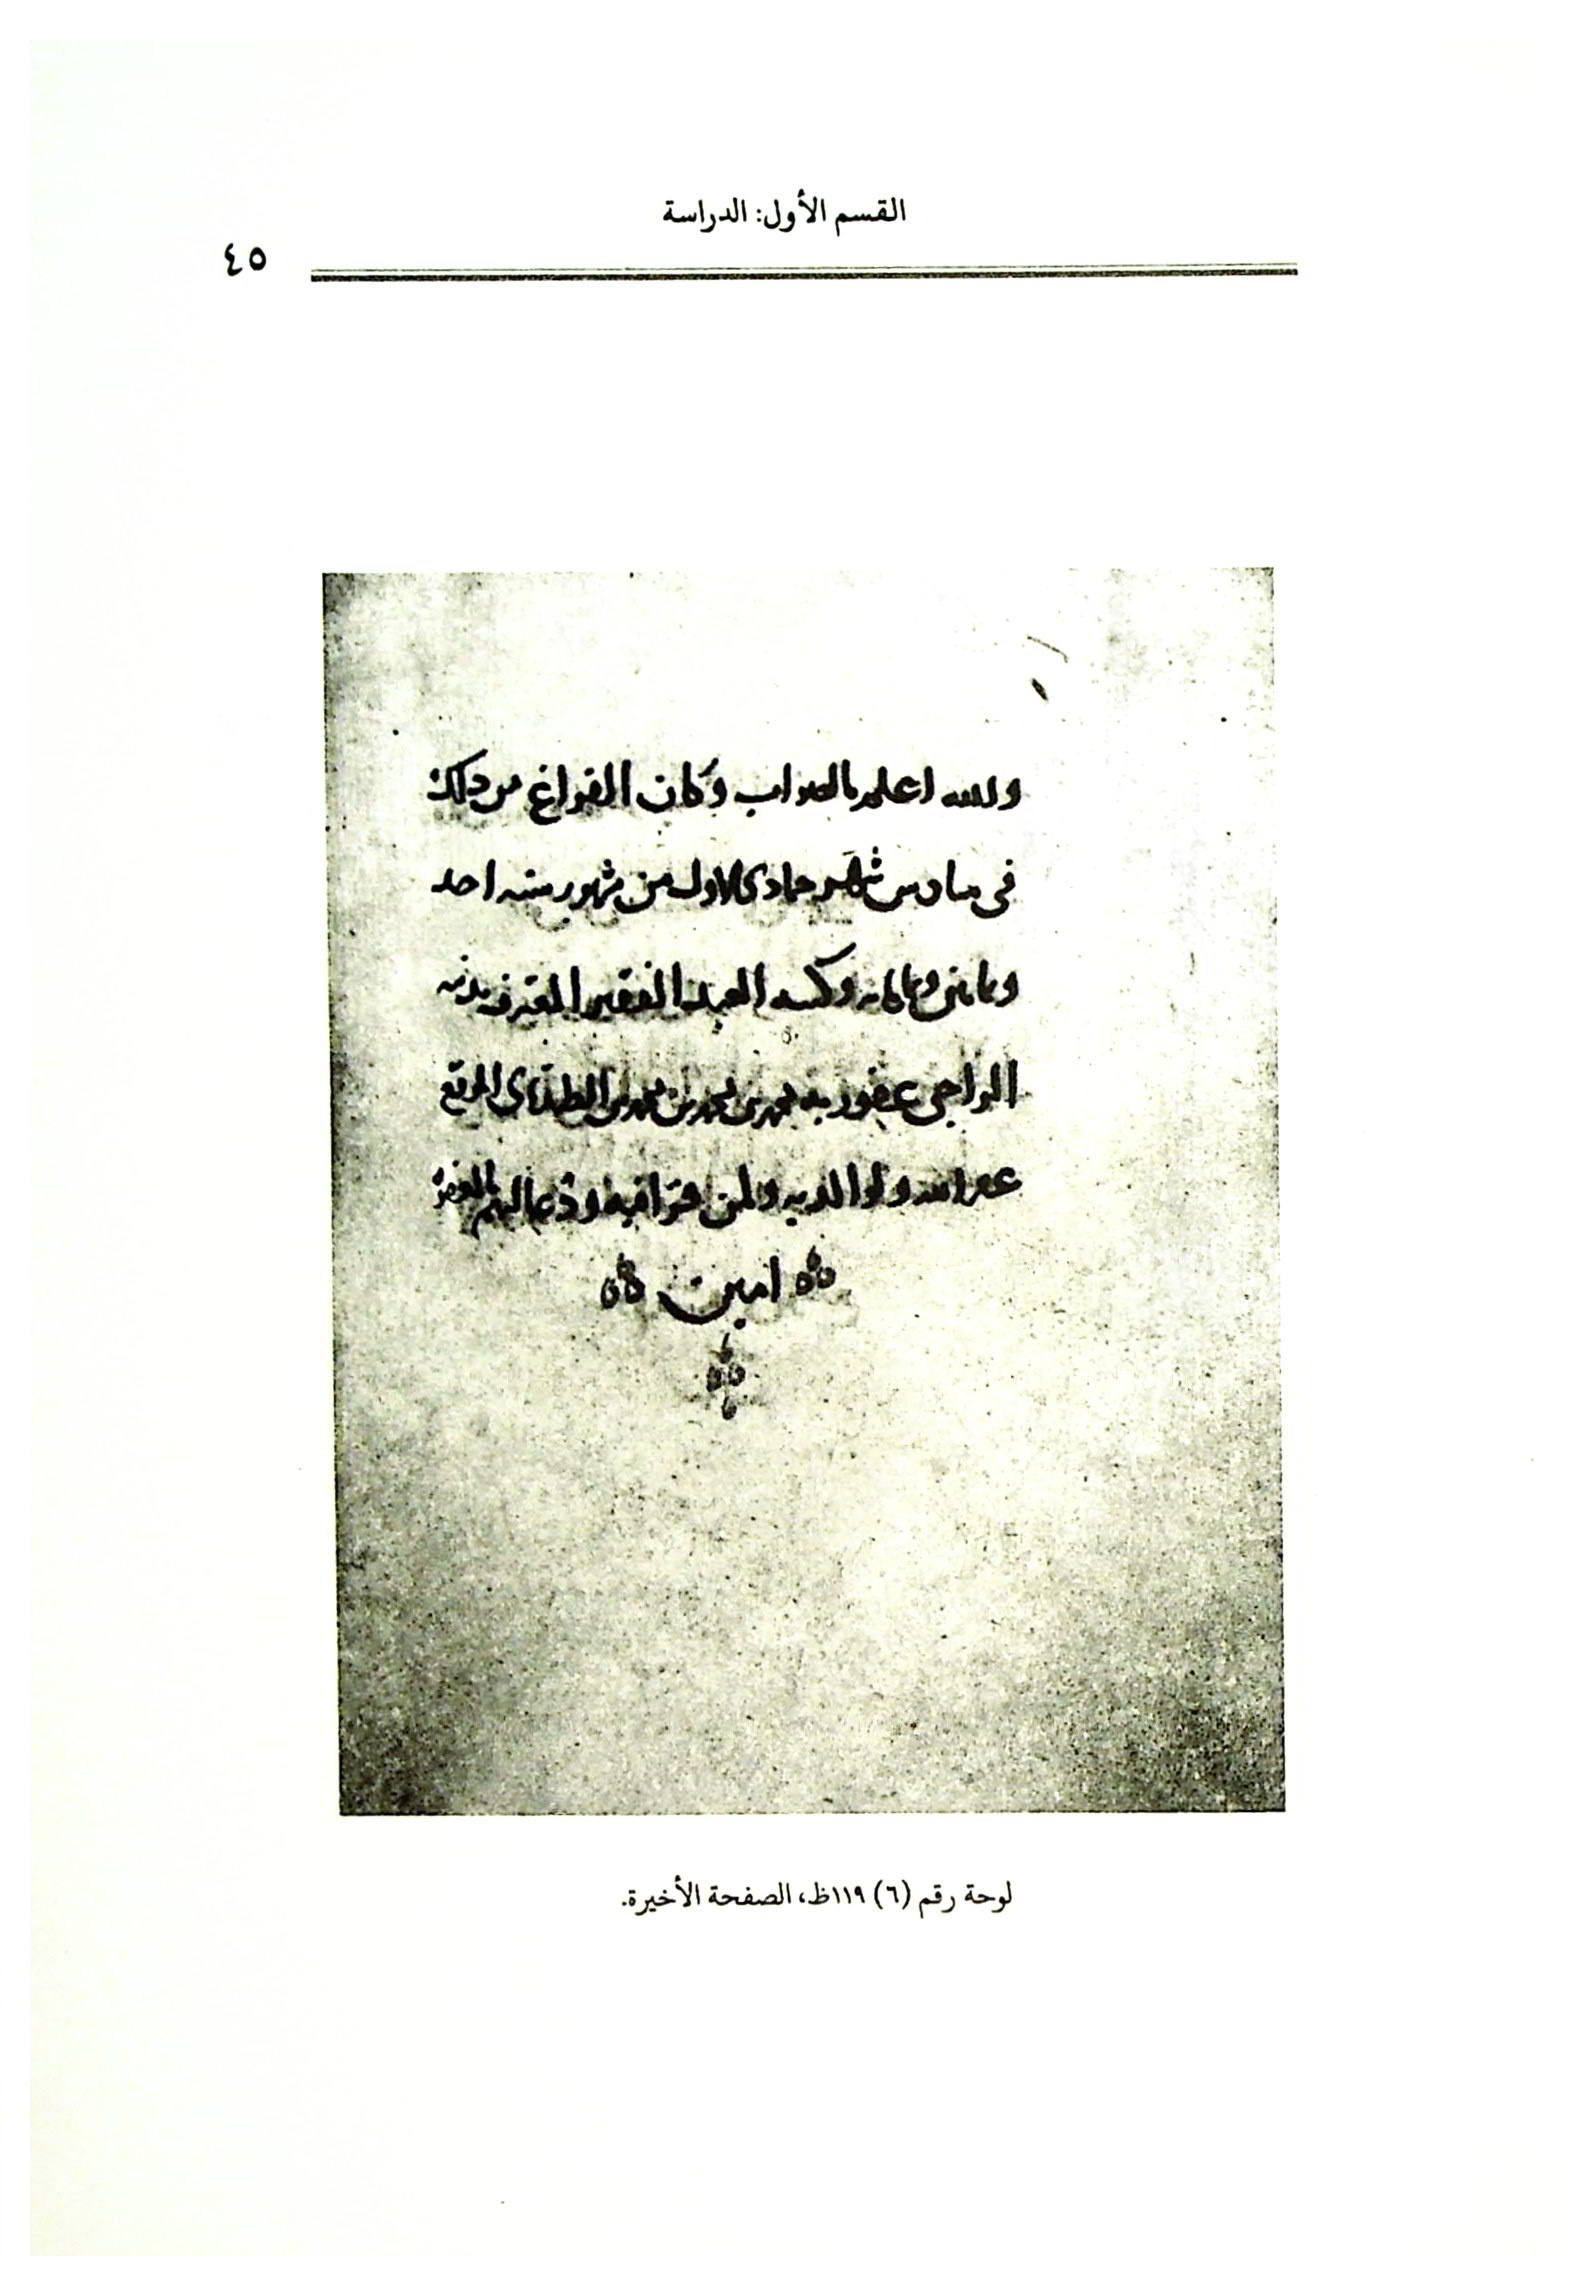 القسم الأول: الدراسة
٤٥
والله اعلم بالصواب وكان الفراغ من ذلك
فى سادس شهر جمادى الاول من شهور سنه احد
وثمانين وثمانمايه وكتبه العبد الفقير المعترف بذنبه
الراجى عفو ربه محمد بن محمد بن محمد بن الموقع
غفر الله له ولوالديه ولمن قرا فيه ودعا لهم بالمغفرة
امين
لوحة رقم (٦) ١١٩ظ، الصفحة الأخيرة.